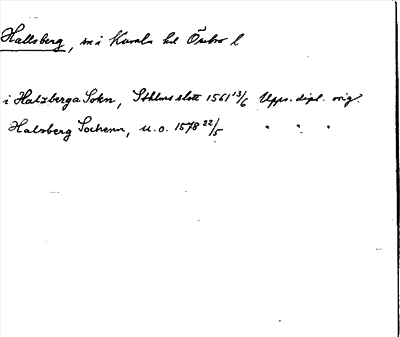 Hallsberg, sn i Kumla hd Örebro l
i Halzberga Sokn, Sthlms slott 1561 13/6 Upps. dipl. orig.
Halsberg Sochenn, u.o. 1578 22/5 " " "